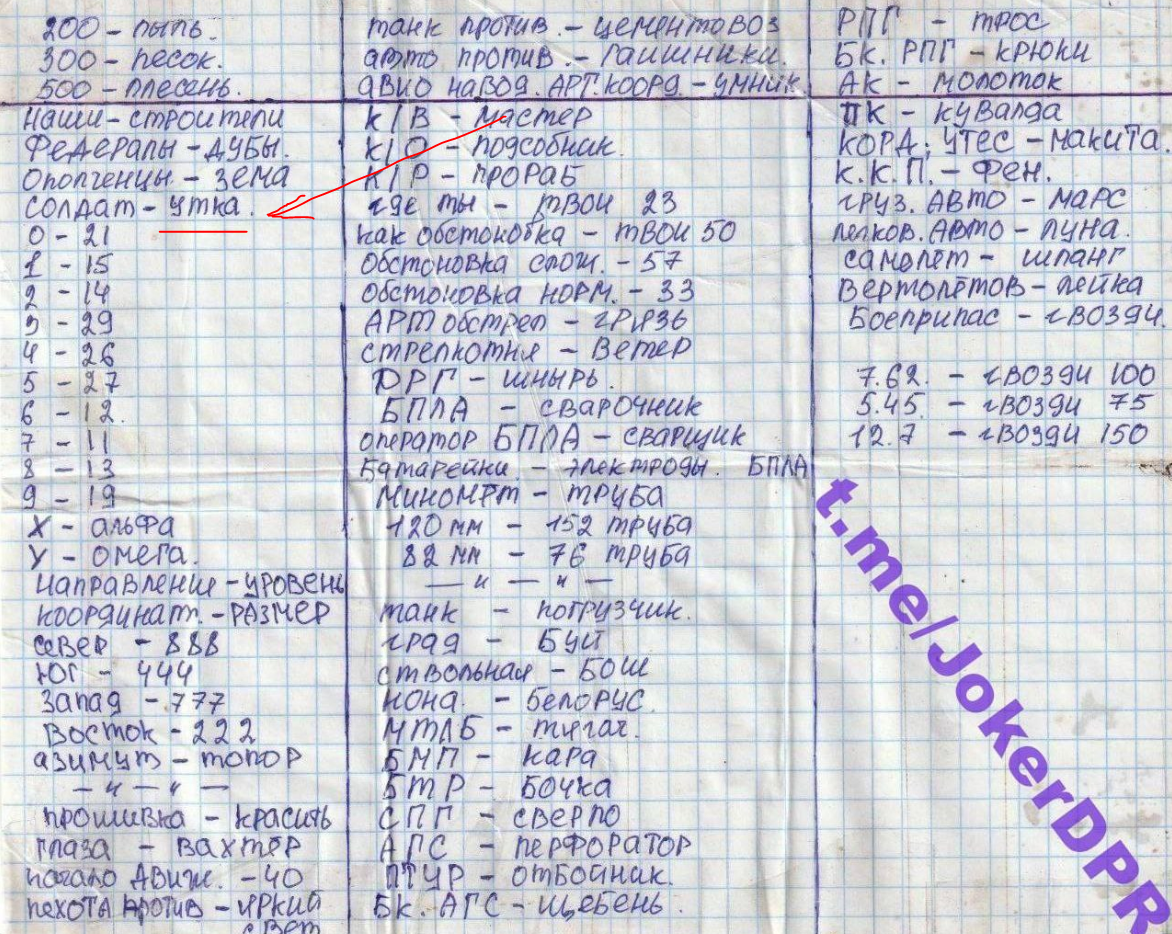 200 - пыль.
300 - песок.
500 - плесень.
Наши - строители
Федералы - дубы.
Ополченцы - зема
Солдат - утка.
0 - 21
1 - 15
2 - 14
3 - 29
4 - 26
5 - 27
6 - 12.
7 - 11
8 - 13
9 - 19
X - альфа
У - омега.
Направление - уровень
координат. - размер
север - 888
Юг - 444
Запад - 777
Восток - 222
азимут - топор
— " — " —
прошивка - красить
глаза - вахтёр
начало движ. - 40
пехота против - яркий
свет
танк против. - цементовоз
авто против. - гаишники.
авио навод. арт. коорд - умник
К/В - мастер
К/О - подсобник.
К/Р - прораб
где ты - твои 23
как обстоновка - твои 50
Обстоновка слож. - 57
Обстоновка норм. - 33
Арт обстрел - грязь
стрелкотня - Ветер
ДРГ - шнырь.
БПЛА - сварочник
оператор БПЛА - сварщик
Батарейки - электроды. БПЛА
Миномёт - труба
120 мм - 152 труба
82 мм - 76 труба
— " — " —
танк - погрузчик.
град - Буй
ствольная - Бош
нона. - Белорус.
МТЛБ - тягач.
БМП - кара
БТР - Бочка
СПГ - сверло
АГС - перфоратор
ПТУР - отбойник.
Бк. АГС - щебень.
РПГ - трос
Бк. РПГ - крюки
АК - молоток
ПК - кувалда
КОРД; УТЕС - макита.
К.К.П. - Фен.
груз. Авто - Марс
легков. Авто - луна.
самолет - шланг
Вертолётов - лейка
Боеприпас - гвозди.
7.62. - гвозди 100
5.45. - гвозди 75
12.7 - гвозди 150
t.me/JokerDPR